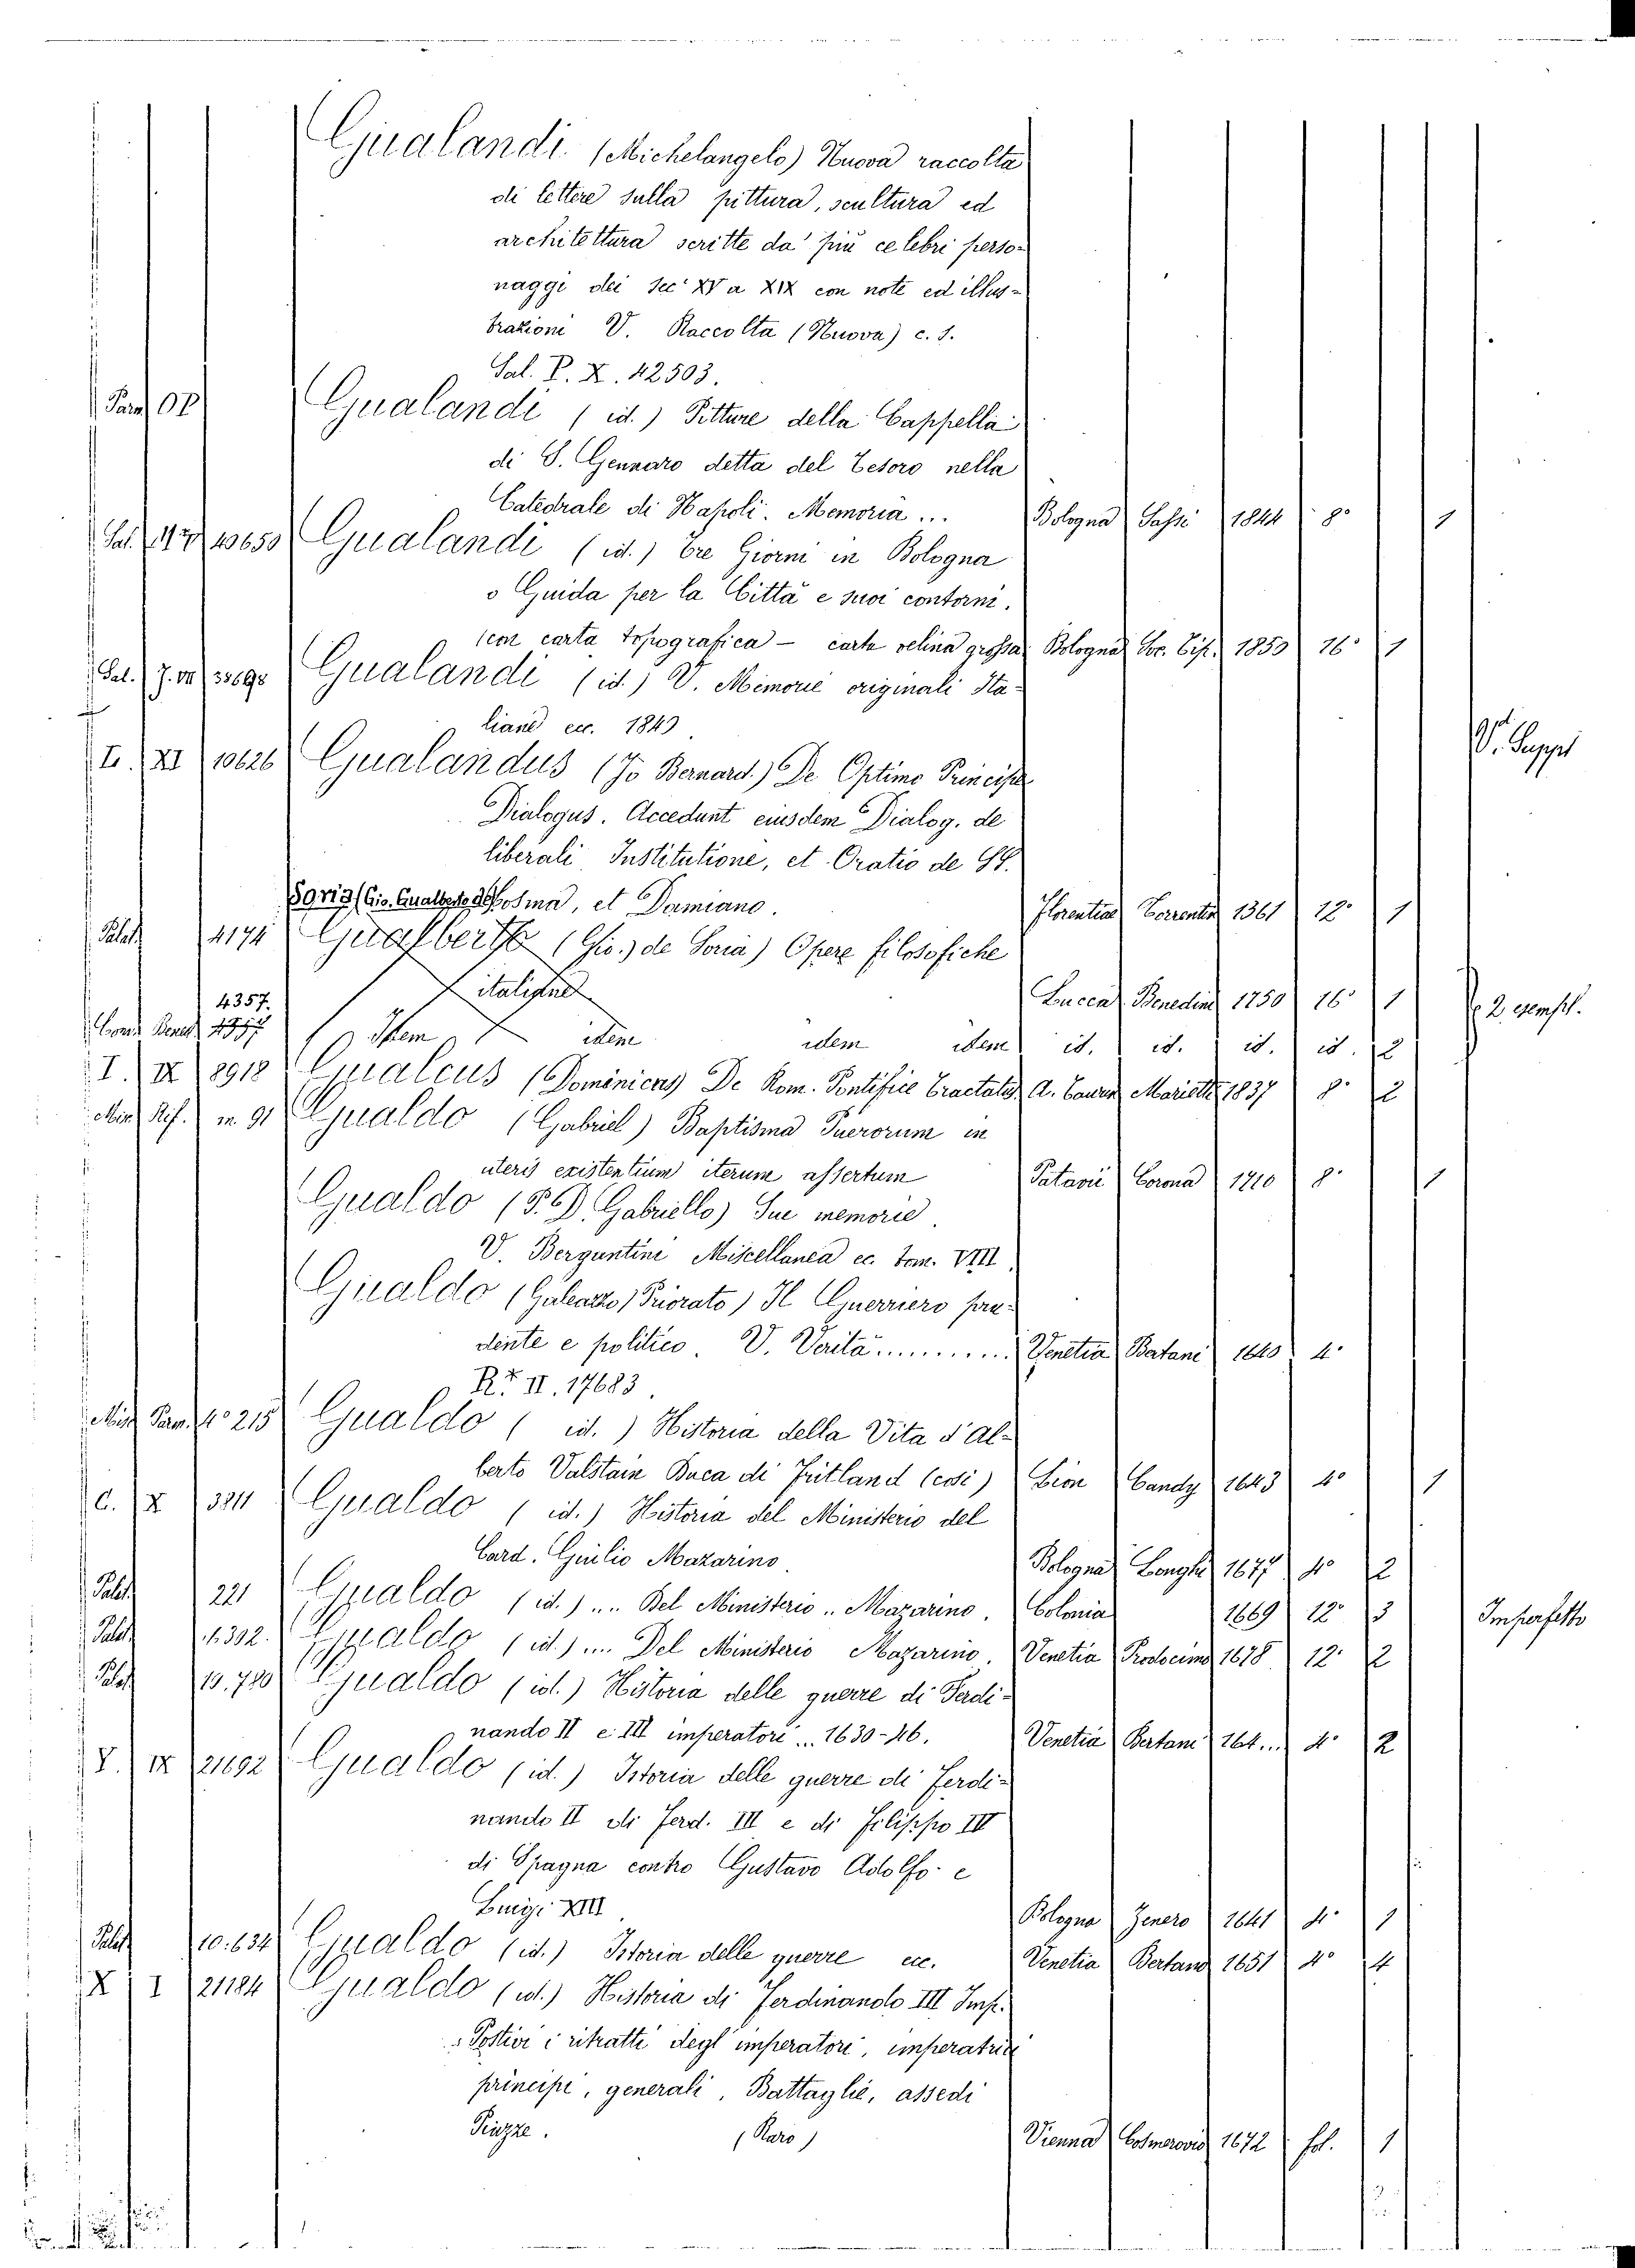 Gualandi (Michelangelo) Nuova raccolta
di lettere sulla pittura, scultura ed
architettura scritte da' più celebri perso-
naggi dei sec XV a XIX con note ed illus-
trazioni V. Raccolta (Nuova) c. s.
Sal. P. X. 42503.
Gualandi (id.) Pitture della Cappella
di S. Gennaro detta del Tesoro nella
Catedrale di Napoli. Memoria ... Bologna Sassi 1844 8° 1
Gualandi (id.) Tre Giorni in Bologna
o Guida per la Città e suoi contorni.
con carta topografica - carta velina grossa Bologna Soc. Tip. 1850 16° 1
Sal. J. VI 33698 Gualandi (id.) V. Memorie originali Ita-
liane ecc. 1840
L. XI 10626 Gualandus (Jo Bernard.) De Optimo Principe V. Suppl
Dialogus. Accedunt eiusdem Dialog. de
liberali Institutione, et Oratio de SS.
Soria (Gio. Gualberto de) Cosma, et Damiano. Florentiae Torrentin 1561 12° 1
Palat 4174 Gualberto (Gio.) de Soria) Opere filosofiche
italiane Lucca Benedini 1750 16° 1 2 esempl.
4357.
Item idem idem idem id. id. id. id. 2
I. IX 8918 Gualcus (Dominicus) De Rom. Pontifice Tractatus A. Taurin Marietti 1837 8° 2
Misc Rif. m. 91 Gualdo (Gabriel) Baptisma Puerorum in
uteris existentium iterum assertum Patavii Corona 1710 8° 1
Gualdo (P. D. Gabriello) Sue memorie.
V. Berguntini Miscellanea ec. tom. VIII.
Gualdo (Galeazzo) Priorato) Il Guerriero pru-
dente e politico. V. Verità .......... Venetia Bertani 1640 4°
R.x II. 17683.
Misc Pam. 4° 215 Gualdo (id.) Historia della Vita d'Al-
berto Valstain Duca di Fritland (così) Lion Candy 1643 4° 1
C. X 3211 Gualdo (id.) Historia del Ministerio del
Card. Giulio Mazarino. Bologna Longhi 1677 4° 2
Palat 221 Gualdo (id.) ... Del Ministerio .. Mazarino. Colonia 1669 12° 3 Imperfetto
Palat 1.392. Gualdo (id.) ... Del Ministerio Mazarino. Venetia Prodocimo 1678 12° 2
Palat 10.780 Gualdo (id.) Historia delle guerre di Ferdi-
nando II e III imperatori ... 1630-46. Venetia Bertani 164... 4° 2
V. IX 21692 Gualdo (id.) Istoria delle guerre di Ferdi-
nando II di Ferd. III e di Filippo IV
di Spagna contro Gustavo Adolfo e
Luigi XIII Bologna Zenero 1641 4° 1
Palat 10.634 Gualdo (id.) Istoria delle guerre ecc. Venetia Bertani 1651 4° 4
X I 21184 Gualdo (id.) Historia di Ferdinando III Imp.
Postivi i ritratti degl' imperatori, imperatrici
principi, generali, Battaglie, assedi
Piazze. (Raro) Vienna Cosmerovio 1672 fol. 1